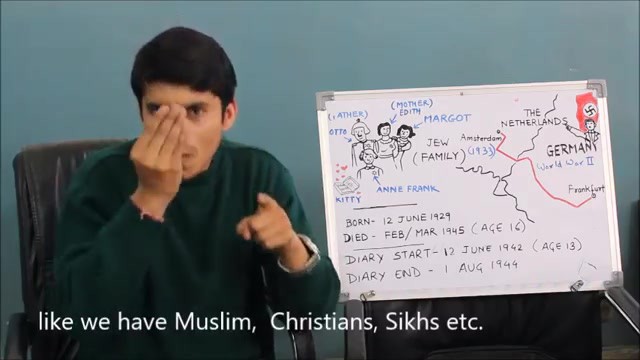 (FATHER)
OTTO
(MOTHER)
EDITH
MARGOT
JEW
(FAMILY)
ANNE FRANK
KITTY
THE
NETHERLANDS
Amsterdam
(1933)
GERMANY
World War II
Frankfurt
BORN- 12 JUNE 1929
DIED - FEB/MAR 1945 (AGE 16)
DIARY START- 12 JUNE 1942 (AGE 13)
DIARY END - 1 AUG 1944
like we have Muslim, Christians, Sikhs etc.